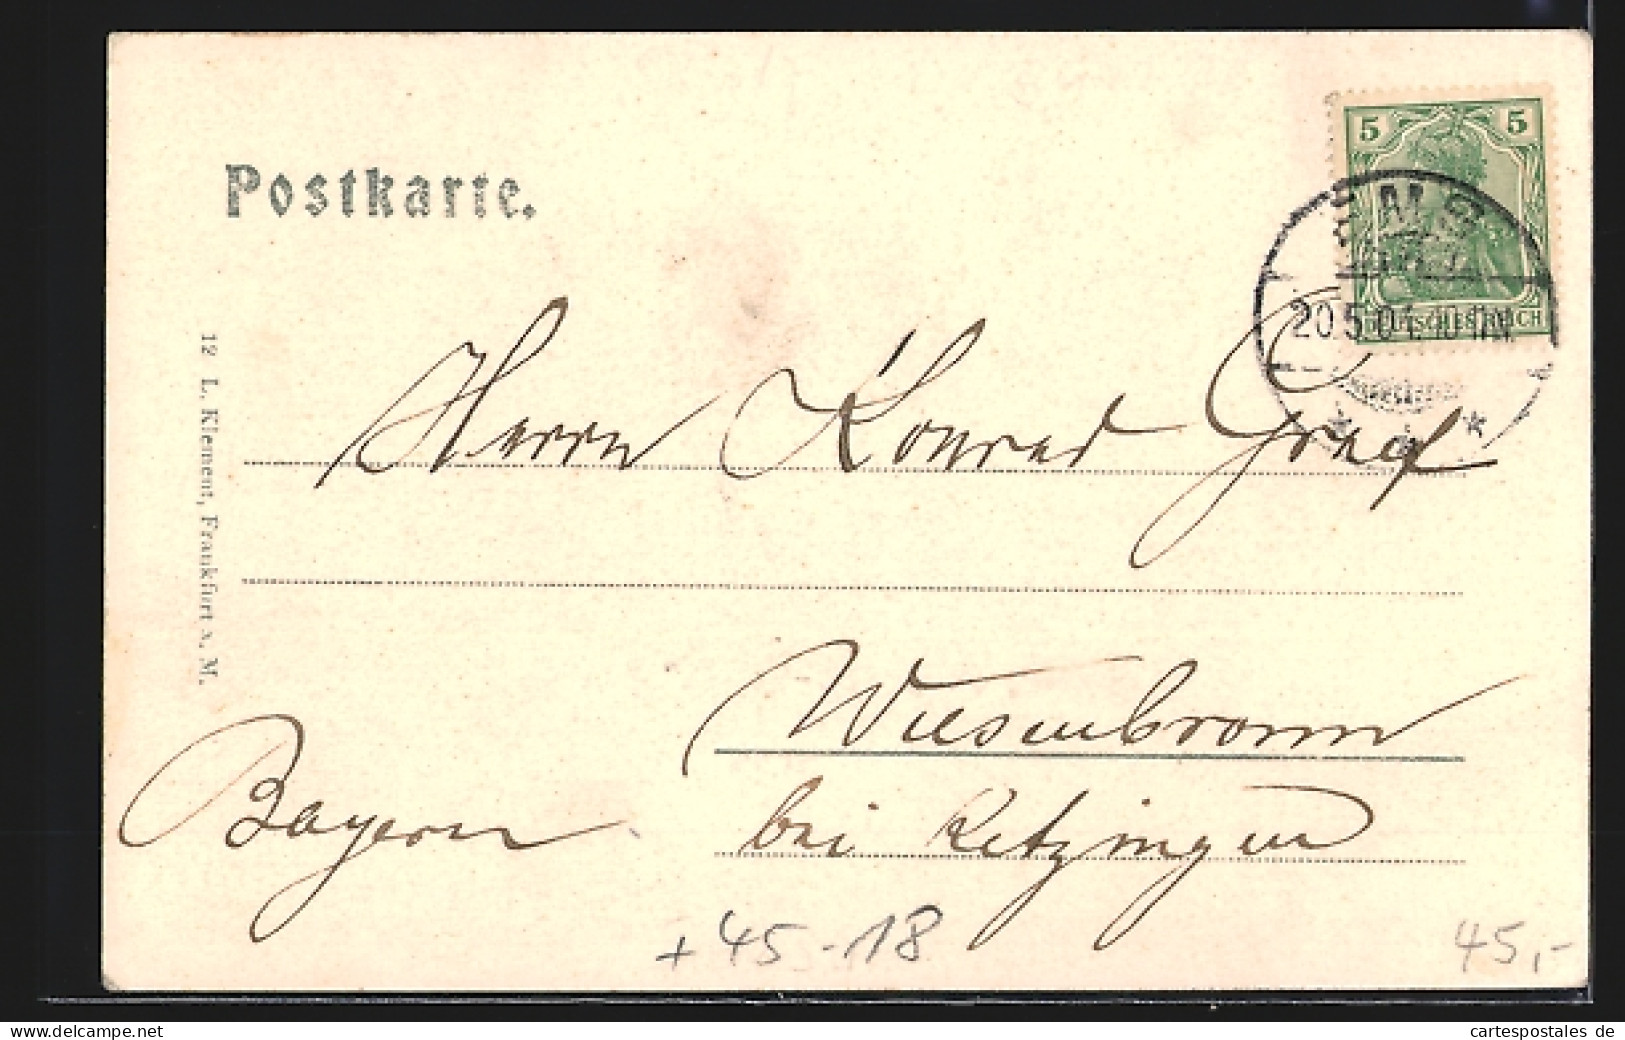 Postkarte.
5 5
EMS
20.5.01. 10-11V.
DEUTSCHES REICH
12 L. Klement, Frankfurt a. M.
Herrn Konrad Graf
Wiesenbronn
bei Kitzingen
Bayern
+ 45 - 18
45,-
www.cartespostales.eu
cartespostales de